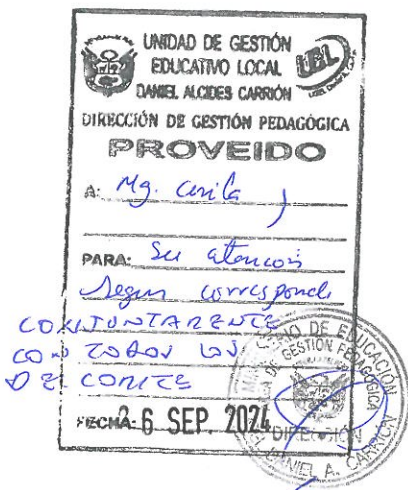 UNIDAD DE GESTIÓN
EDUCATIVO LOCAL
DANIEL ALCIDES CARRIÓN
DIRECCIÓN DE GESTIÓN PEDAGÓGICA
PROVEIDO
A: Mg.
PARA: Su atención
Según corresponde
CONJUNTAMENTE
CON TODOS LOS
DEL COMITE
FECHA: 26 SEP. 2024
DE EDUCACIÓN
GESTIÓN PEDAGÓGICA
DIRECCIÓN
DANIEL A. CARRIÓN